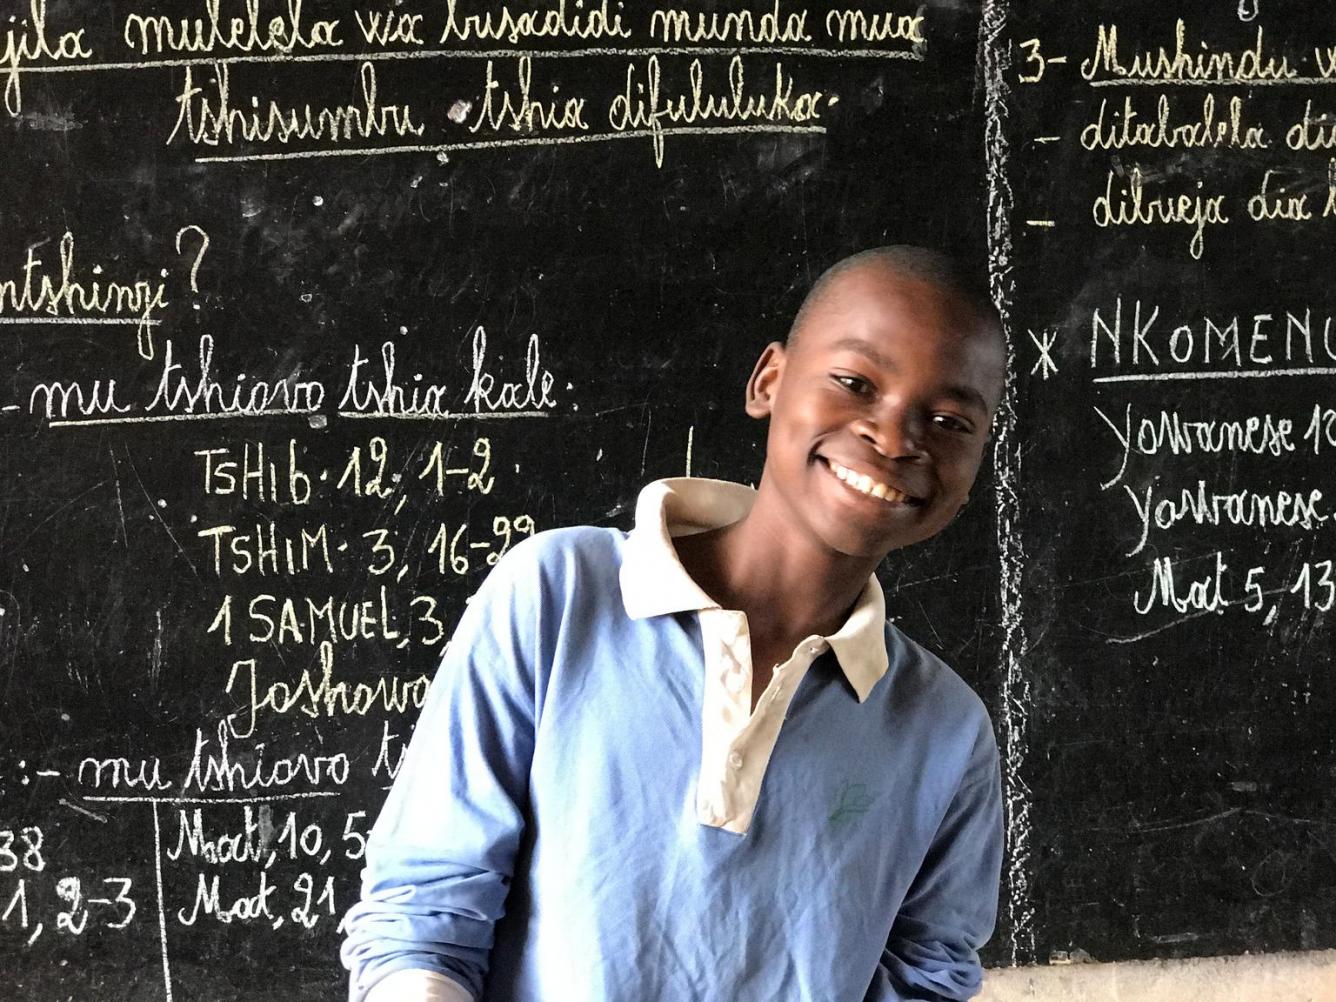 mulelela wa busadidi munda mua
tshisumbu tshia difululuka.
ntshinyi?
- mu tshiovo tshia kale:
TSHIb. 12, 1-2
TSHIM. 3, 16-22
1 SAMUEL, 3,
Joshowa
:- mu tshiovo
38
1, 2-3
Mat, 10, 5
Mat, 21,
3- Mushindu
- ditabalela
- dibueja dia
* NKOMENU
Yowanese
Yowanese
Mat 5, 13